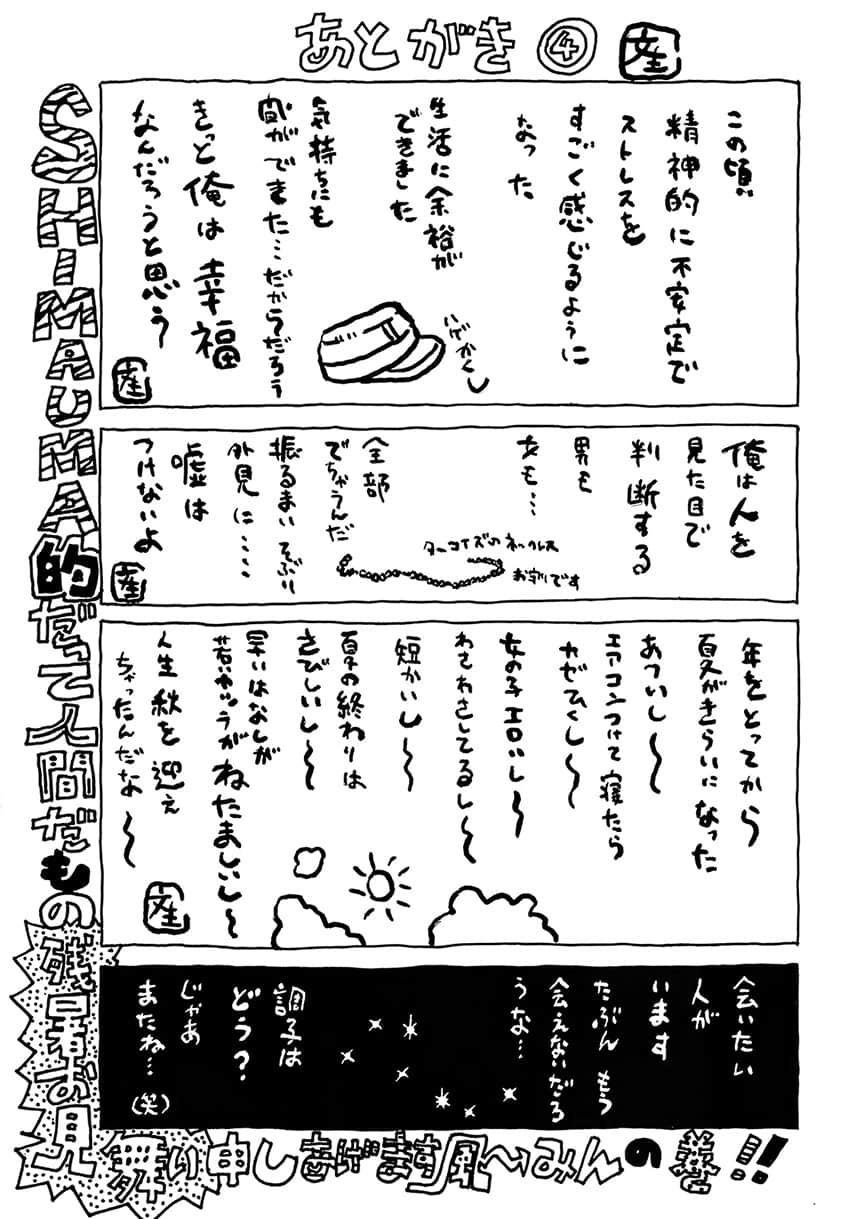 あとがき④
この頃
精神的に不安定で
ストレスを
すごく感じるように
なった
生活に余裕が
できました
気持ちにも
間がでまた…だからだろう
きっと俺は幸福
なんだろうと思う
ハゲかくし
俺は人を
見た目で
判断する
男も
女も…
全部
でちゃうんだ
振るまい そぶり
外見に……
嘘は
つけないよ
ターコイズのネックレス
お守りです
年をとってから
夏がきらいになった
あついし〜
エアコンつけて寝たら
かぜひくし〜
女の子エロいし〜
わさわさしてるし〜
短かいし〜
夏の終わりは
さびしいし〜
早いはなしが
若いヤツらがねたましいし〜
人生秋を迎え
ちゃったんだな〜
会いたい
人が
います
たぶん もう
会えないだろ
うな…
調子は
どう?
じゃあ
またね…(笑)
SHIMAUMA的だって人間だもの残暑お見
舞い申しあげます風へみんの巻!!